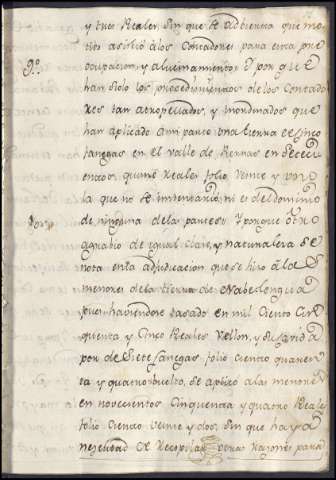 y tres Reales, sin que se advierta que mo-
tibo asistio á los Contadores para esta pre
ocupacion, y alucinamiento. Y por que
9º.
han sido los procedimientos de los Contado-
res tan atropellados, y inordinados que
han aplicado a mi parte una tierra de cinco
fanegas en el valle de en Setecien-
entos, quince Reales folio veinte y
la que no se imbentarió, ni es del dominio
de ninguna de la partes. Y porque otro
agrabio de igual clase, y naturaleza se
nota en la adjudicacion que se hizo á las
menores de la tierra de Nabelengua
pues haviendose tasado en mil Ciento Cin
quenta y Cinco Reales Vellon, y
por de Siete fanegas folio ciento quaren-
ta y quatro buelto, se aplicó a las menores
en novecientos Cinquenta y quatro Reales
folio Ciento veinte y dos, sin que haya
nezesidad de Recopilar otras razones para